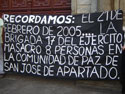 RECORDAMOS: EL 21 DE
FEBRERO DE 2005 LA
BRIGADA 17 DEL EJERCITO
MASACRO 8 PERSONAS EN
LA COMUNIDAD DE PAZ DE
SAN JOSE DE APARTADO.